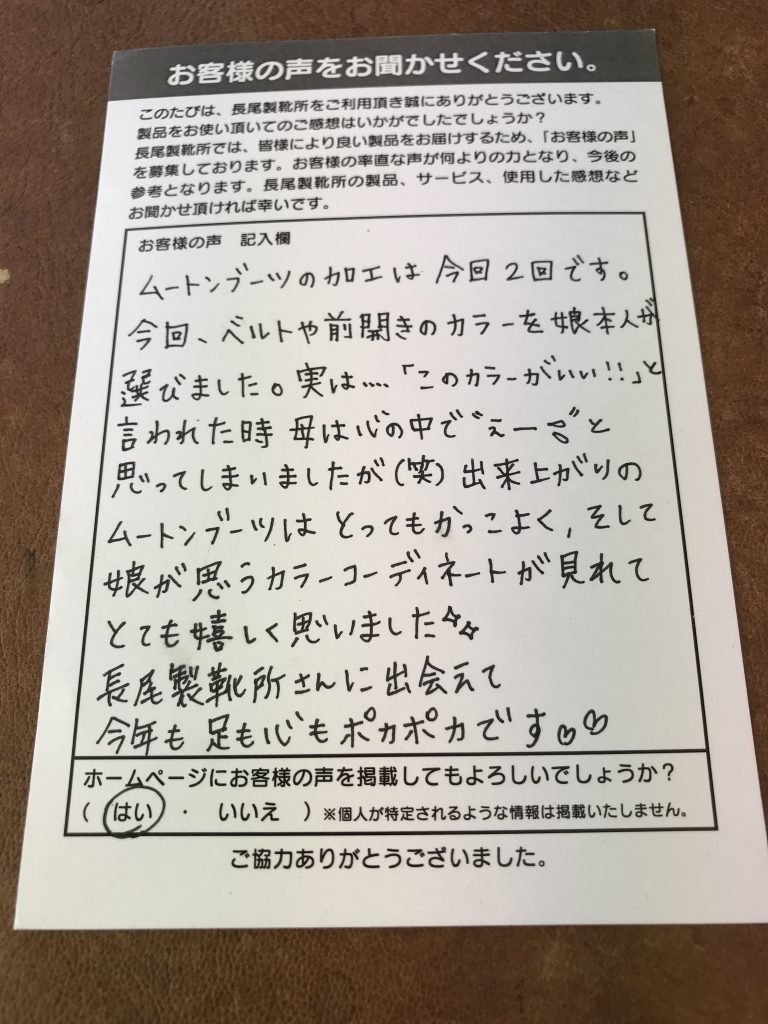 お客様の声をお聞かせください。
このたびは、長尾製靴所をご利用頂き誠にありがとうございます。
製品をお使い頂いてのご感想はいかがでしたでしょうか？
長尾製靴所では、皆様により良い製品をお届けするため、「お客様の声」
を募集しております。お客様の率直な声が何よりの力となり、今後の
参考となります。長尾製靴所の製品、サービス、使用した感想など
お聞かせ頂ければ幸いです。
お客様の声 記入欄
ムートンブーツの加工は 今回 2回です。
今回、ベルトや前開きのカラーを娘本人が
選びました。実は....「このカラーがいい!!」と
言われた時 母は心の中で〝えー〟と
思ってしまいましたが(笑) 出来上がりの
ムートンブーツは とってもかっこよく, そして
娘が思うカラーコーディネートが見れて
とても嬉しく思いました
長尾製靴所さんに出会えて
今年も 足も心もポカポカです♡♡
ホームページにお客様の声を掲載してもよろしいでしょうか？
( はい ・ いいえ ) ※個人が特定されるような情報は掲載いたしません。
ご協力ありがとうございました。